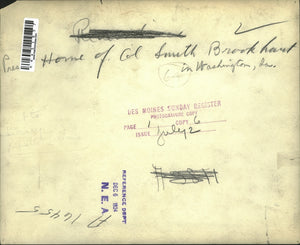 Home of Col Smith Brookhart
in Washington, Ia.
DES MOINES SUNDAY REGISTER
PHOTOGRAVURE COPY
PAGE 1 COPY 6
ISSUE July 2
REFERENCE DEPT
DEC 6 1924
N. E. A.